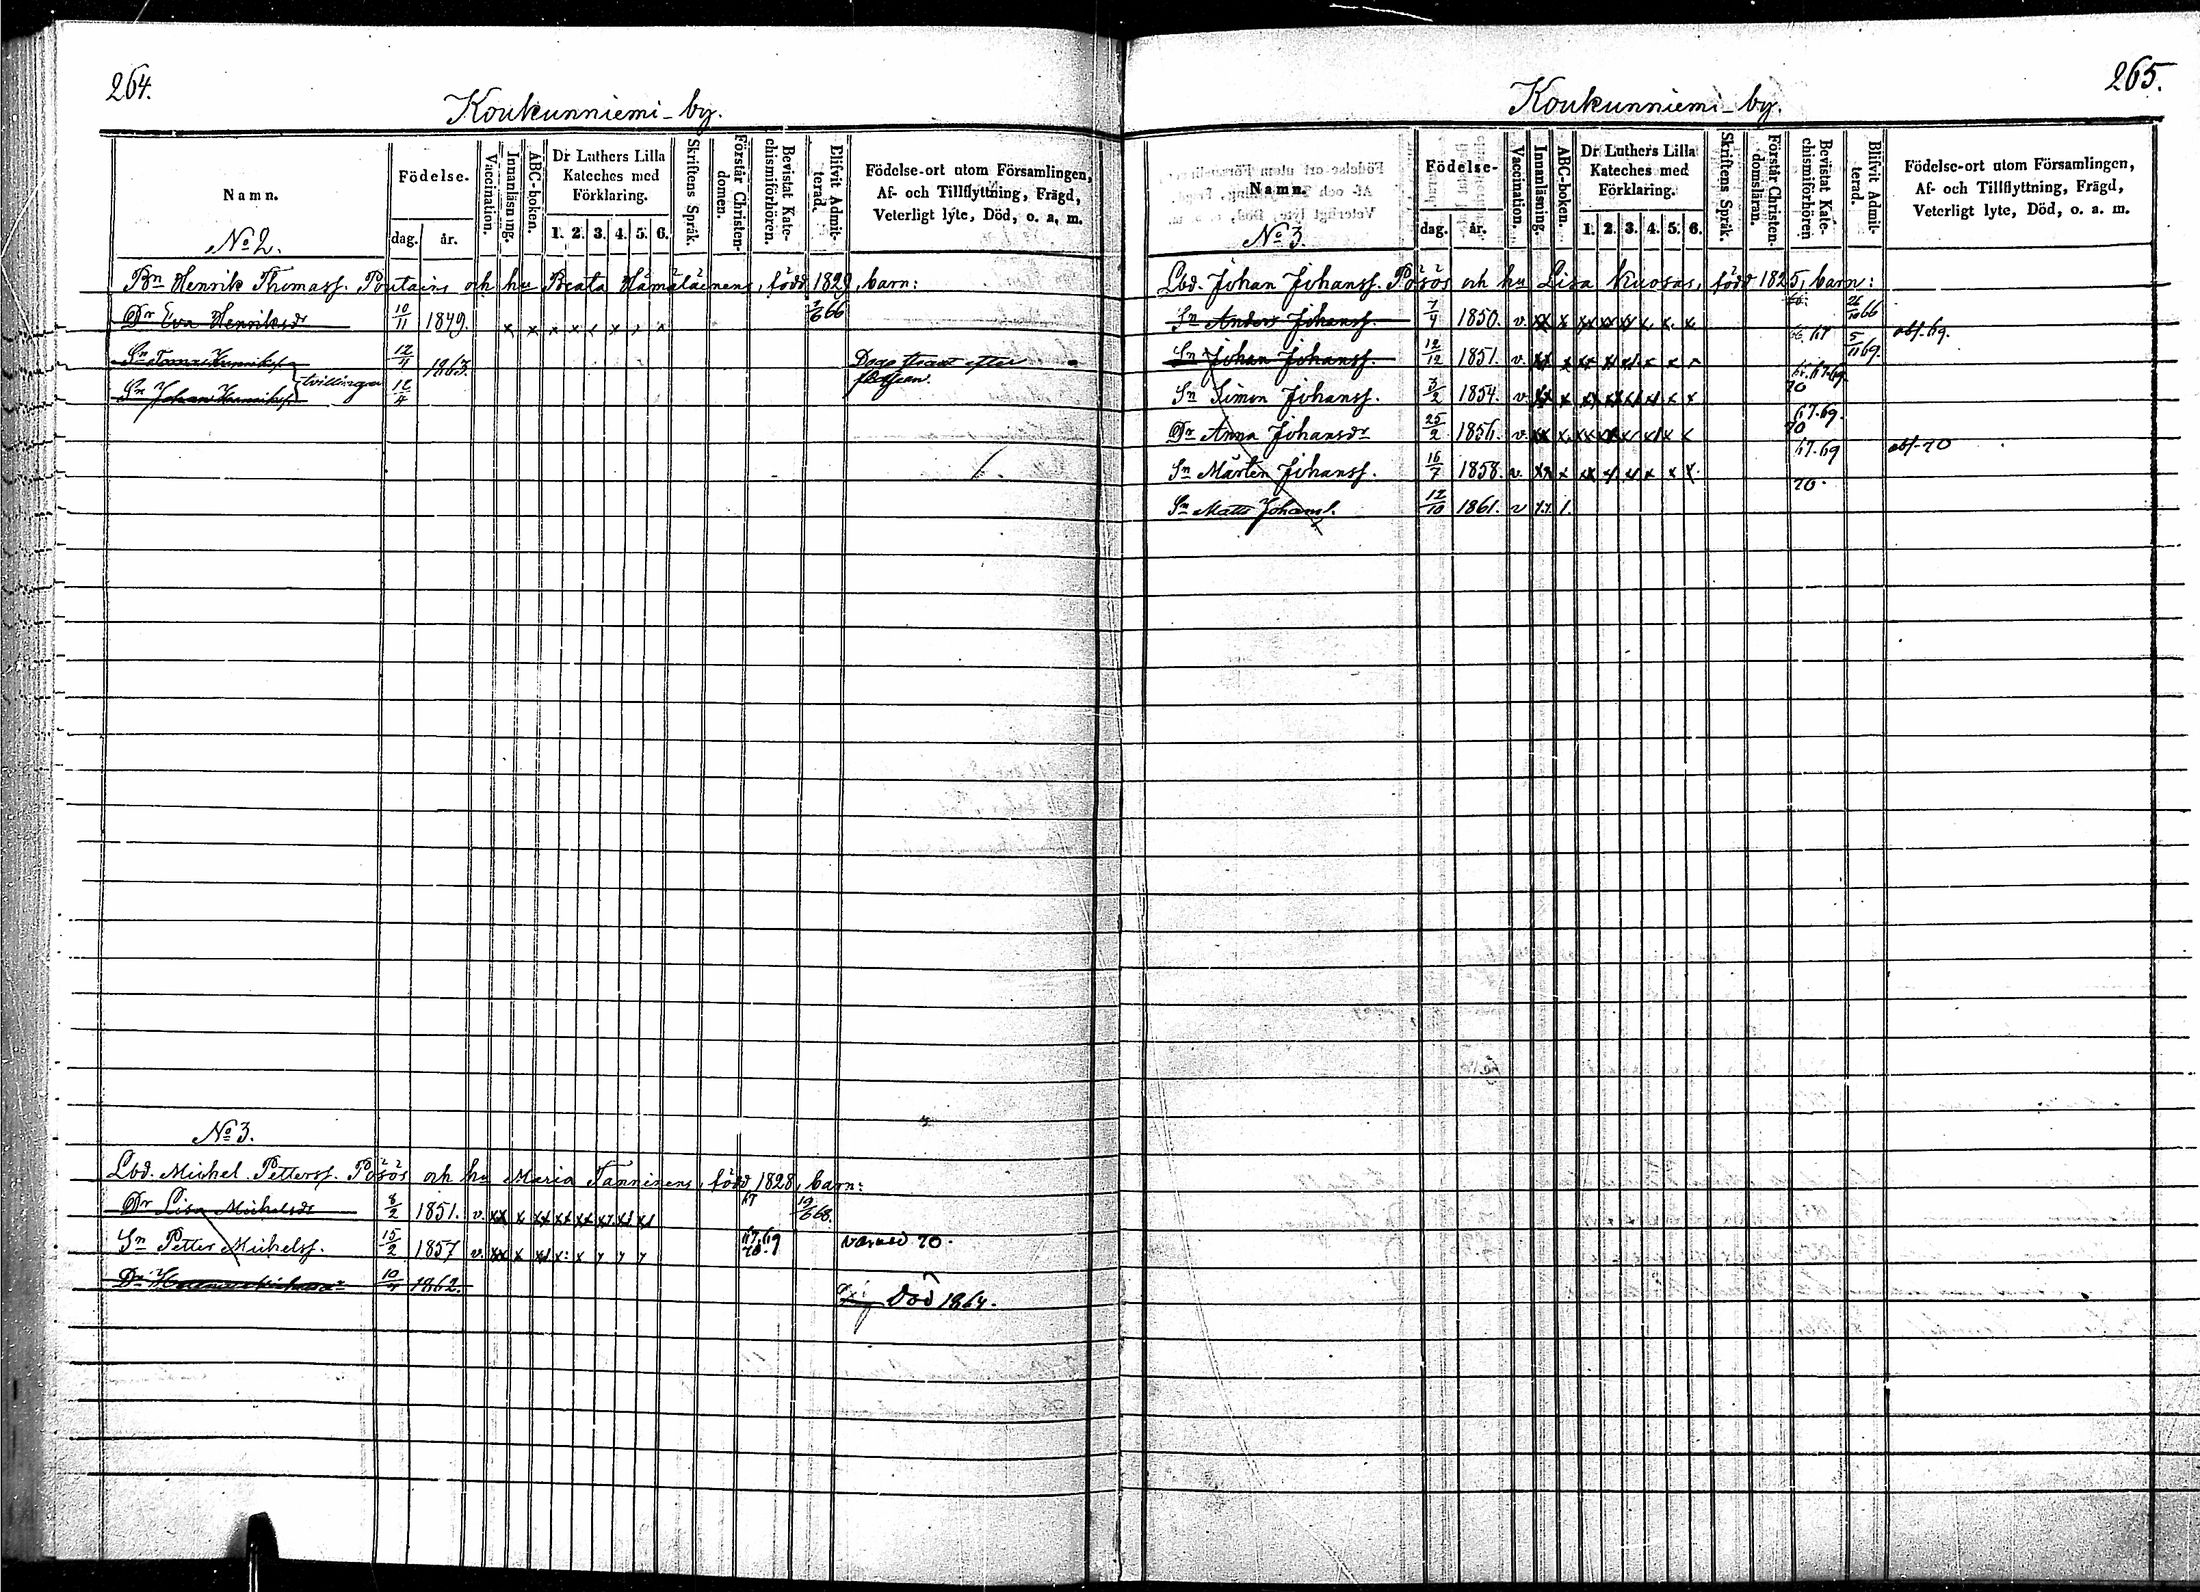 264.
Koukunniemi by.
Namn.
Födelse.
dag. år.
Vaccination.
Innanläsning.
ABC-boken.
Dr Luthers Lilla Kateches med Förklaring.
1. 2. 3. 4. 5. 6.
Skriftens Språk.
Förstår Christendomen.
Bevistat Katechismiförhören.
Blifvit Admitterad.
Födelse-ort utom Församlingen, Af- och Tillflyttning, Frägd, Veterligt lyte, Död, o. a. m.
No 2.
Bn Henrik Thomass. Pontains och hu Beata Hämäläinens, född 1829, barn:
Dr Eva Henriksdr 10/11 1849. x x x x x x x x 66
Sn Tomas Henrikss. 12/4 1863. tvillingar
Sn Johan Henrikss. 12/4
No 3.
Lbd. Michel Petterss. Pösös och hu Maria Tanninens, född 1828, barn:
Dr Lisa Michelsdr 8/2 1851. v. xx x xx xx xx xx xx xx 67 19/6 68.
Sn Petter Michelss. 15/2 1857 v. xx x 67.69 70.
Dr 10/4 1862. Död 1864.
265.
Koukunniemi by.
Namn.
Födelse-
dag. år.
Vaccination.
Innanläsning.
ABC-boken.
Dr Luthers Lilla Kateches med Förklaring.
1. 2. 3. 4. 5. 6.
Skriftens Språk.
Förstår Christendomsläran.
Bevistat Katechismiförhören
Blifvit Admitterad.
Födelse-ort utom Församlingen, Af- och Tillflyttning, Frägd, Veterligt lyte, Död, o. a. m.
No 3.
Lbd. Johan Johanss. Pösös och hu Lisa Kuosas, född 1825, barn:
Sn Anders Johanss. 7/4 1850. v. xx x xx xx xx x x x 26/10 66
Sn Johan Johanss. 12/12 1851. v. xx x xx x 67 5/11 69. abs. 69.
Sn Simon Johanss. 3/2 1854. v. xx x xx xx xx xx x x 67.69. 70
Dr Anna Johansdr 25/2 1856. v. xx x xx xx 67.69. 70
Sn Mårten Johanss. 16/7 1858. v. xx x 67.69 70. abs. 70
Sn Matts Johanss. 12/10 1861. v